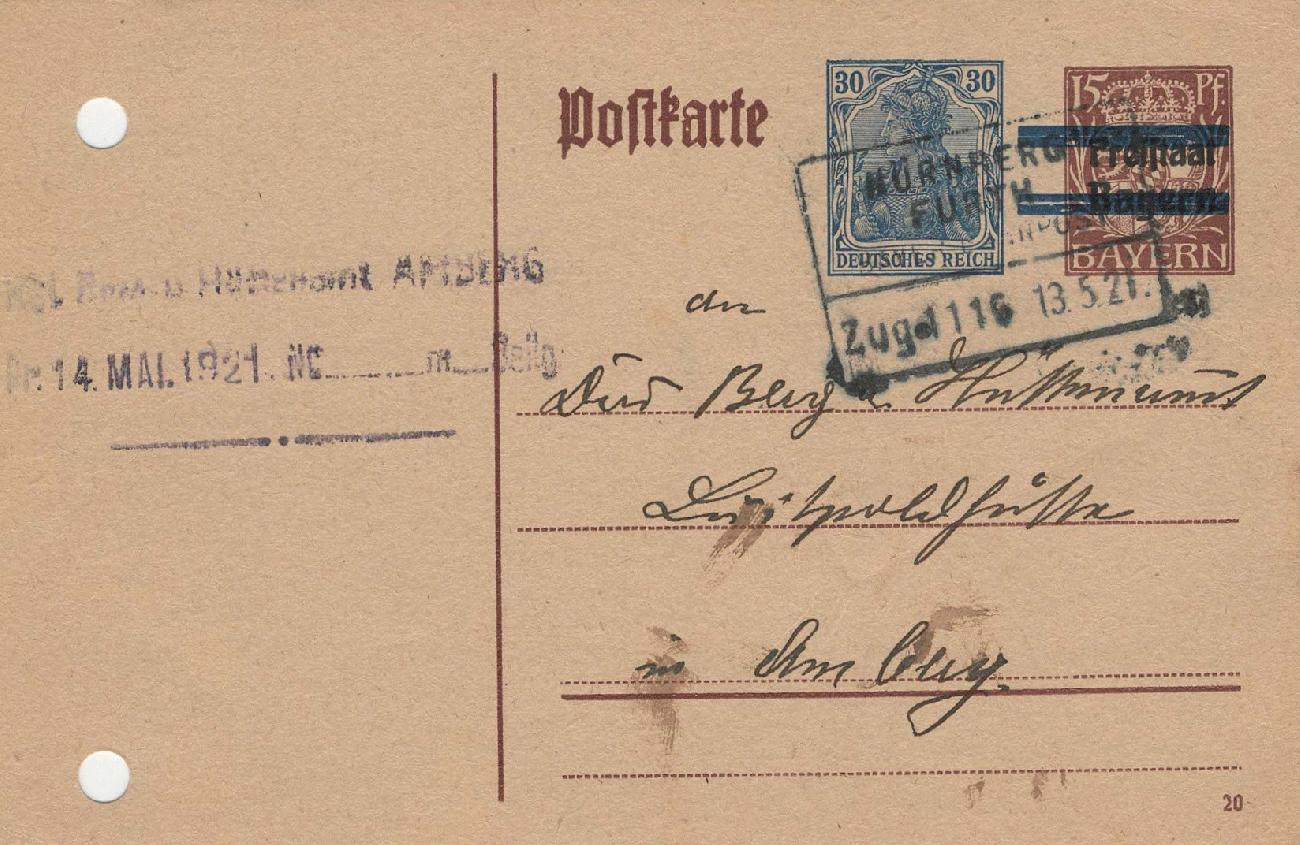 Postkarte
30 30
DEUTSCHES REICH
15 Pf.
Freistaat
Bayern
BAYERN
NÜRNBERG
FÜRTH
BAHNPOST
Zug 1116 13.5.21.
Hüttenamt AMBERG
Pr. 14. MAI. 1921. No m Beilg.
An
Das Berg u. Hüttenamt
Luitpoldhütte
in Amberg.
20